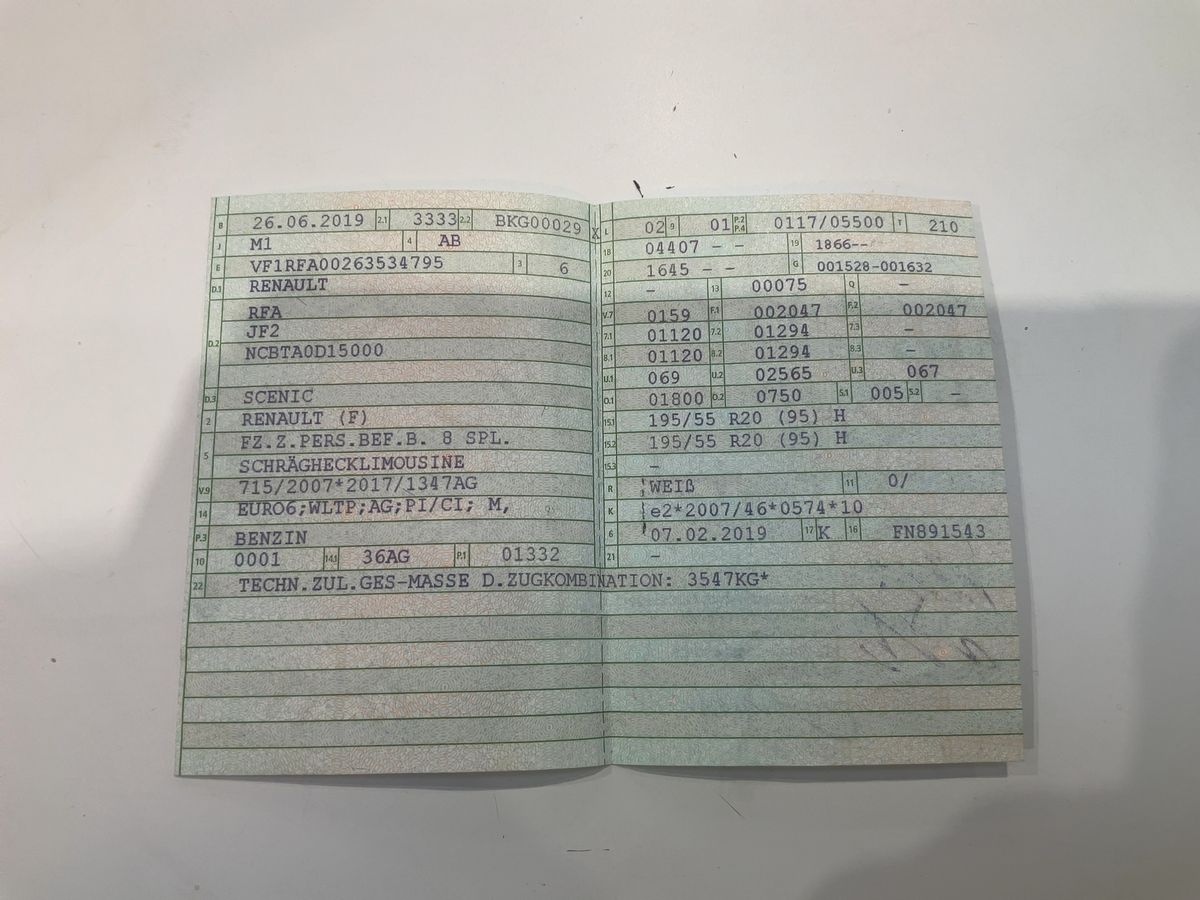 B 26.06.2019 2.1 3333 2.2 BKG00029 X
J M1 4 AB
E VF1RFA00263534795 3 6
D.1 RENAULT
RFA
D.2 JF2
NCBTA0D15000
D.3 SCENIC
2 RENAULT (F)
5 FZ.Z.PERS.BEF.B. 8 SPL.
SCHRÄGHECKLIMOUSINE
V.9 715/2007*2017/1347AG
14 EURO6;WLTP;AG;PI/CI; M,
P.3 BENZIN
10 0001 14.1 36AG P.1 01332
L 02 9 01 P.2 P.4 0117/05500 T 210
18 04407 - - 19 1866--
20 1645 - - G 001528-001632
12 - 13 00075 Q -
V.7 0159 F.1 002047 F.2 002047
7.1 01120 7.2 01294 7.3 -
8.1 01120 8.2 01294 8.3 -
U.1 069 U.2 02565 U.3 067
O.1 01800 O.2 0750 S.1 005 S.2 -
15.1 195/55 R20 (95) H
15.2 195/55 R20 (95) H
15.3 -
R WEIß 11 0/
K e2*2007/46*0574*10
6 07.02.2019 17 K 16 FN891543
21 -
22 TECHN.ZUL.GES-MASSE D.ZUGKOMBINATION: 3547KG*